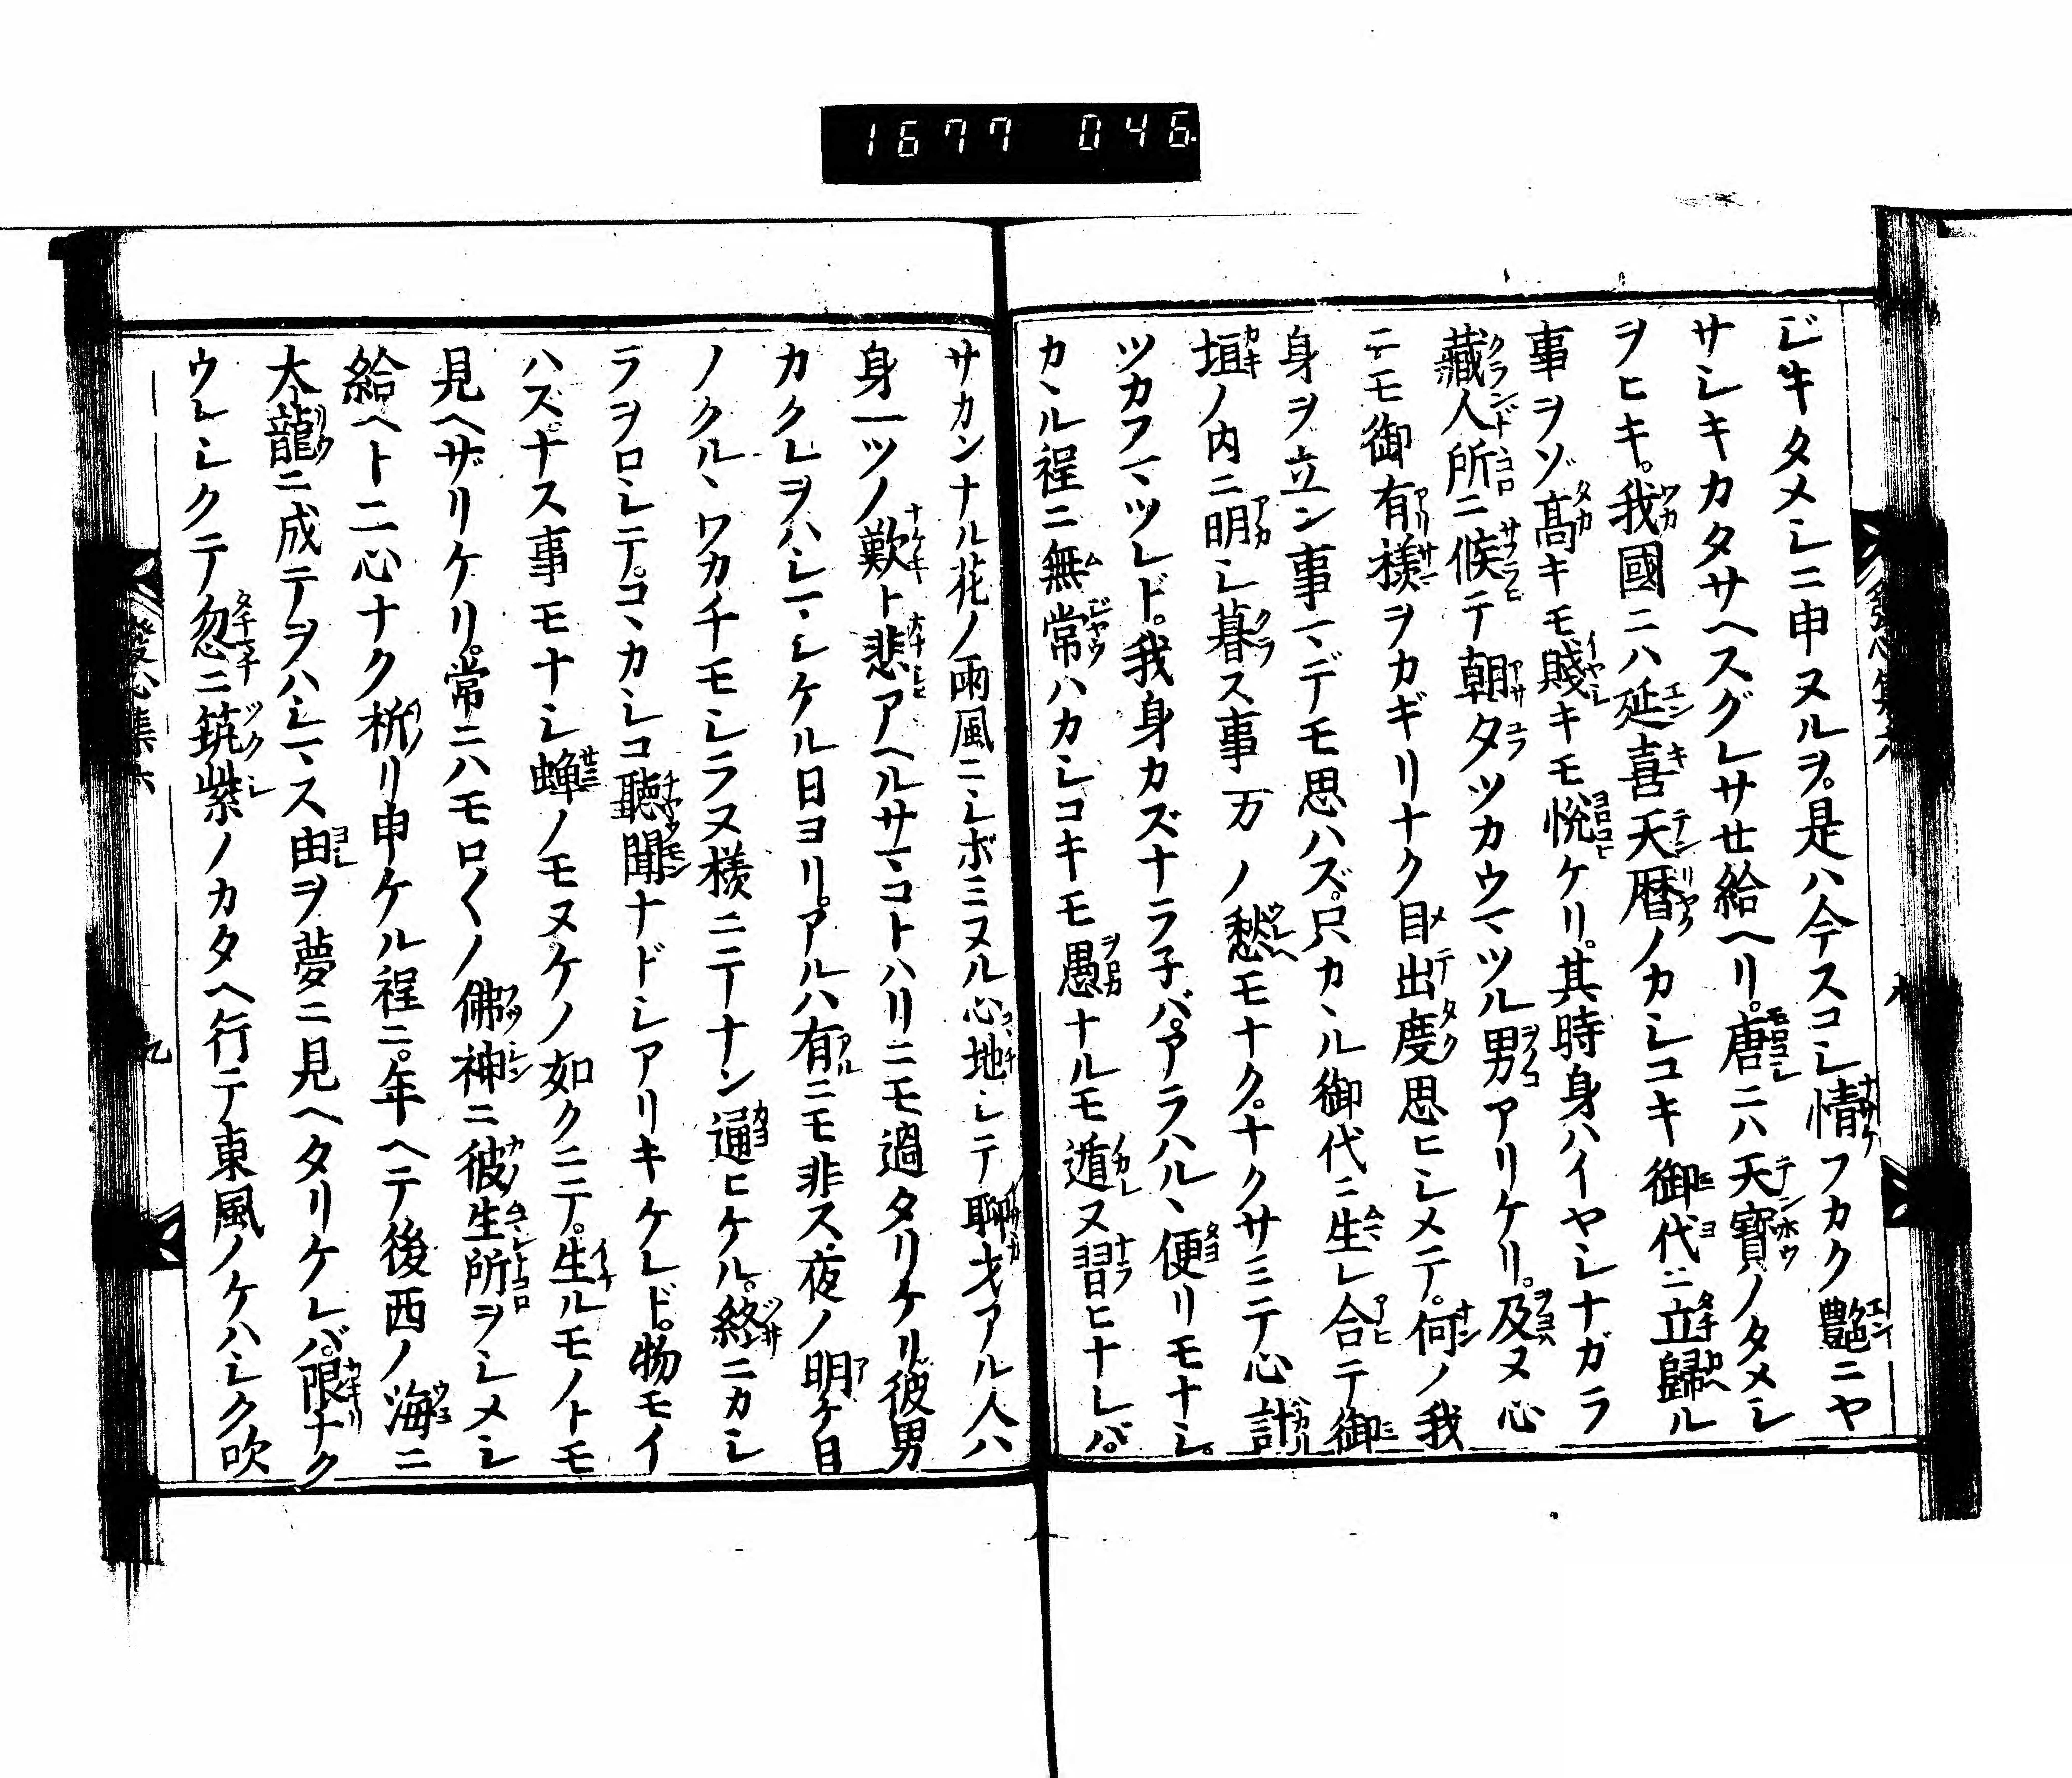 1677 046
ビキタメシニ申ヌルヲ。是ハ今スコシ情フカク艶ニヤ
サシキカタサヘスグレサせ給ヘリ。唐ニハ天寳ノタメシ
ヲヒキ。我國ニハ延喜天暦ノカシコキ御代ニ立歸ル
事ヲゾ髙キモ賤キモ悦ケリ。其時身ハイヤシナガラ
藏人所ニ候テ朝タツカウマツル男アリケリ。及ヌ心
ニモ御有様ヲカギリナク目出度思ヒシメテ。何ノ我
身ヲ立ン事マデモ思ハズ。只カヽル御代ニ生レ合テ御
垣ノ内ニ明シ暮ス事万ノ愁モナク。ナクサミテ心計
ツカフマツレド。我身カズナラ子バ。アラハルヽ便リモナシ。
カヽル程ニ無常ハカシコキモ愚ナルモ遁ヌ習ヒナレバ。
サカンナル花ノ雨風ニシボミヌル心地シテ聊才アル人ハ
身一ツノ歎ト悲アヘルサマコトハリニモ過タリケリ。彼男
カクレヲハシマシケル日ヨリ。アルハ有ニモ非ス。夜ノ明ケ日
ノクルヽワカチモシラヌ様ニテナン通ヒケル。終ニカシ
ラヲロシテ。コヽカシコ聴聞ナドシアリキケレド。物モイ
ハス。ナス事モナシ蝉ノモヌケノ如クニテ。生ルモノトモ
見ヘザリケリ。常ニハモロ〱ノ佛神ニ彼生所ヲシメシ
給ヘト二心ナク祈リ申ケル程ニ。年ヘテ後西ノ海ニ
大龍ニ成テヲハシマス由ヲ夢ニ見ヘタリケレバ。限ナク
ウレシクテ忽ニ筑紫ノカタヘ行テ東風ノケハシク吹
發心集六
九